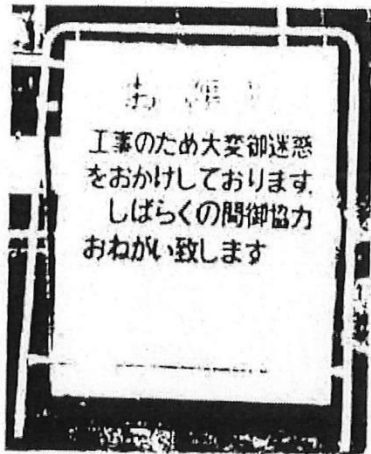 お願い
工事のため大変御迷惑
をおかけしております。
しばらくの間御協力
おねがい致します